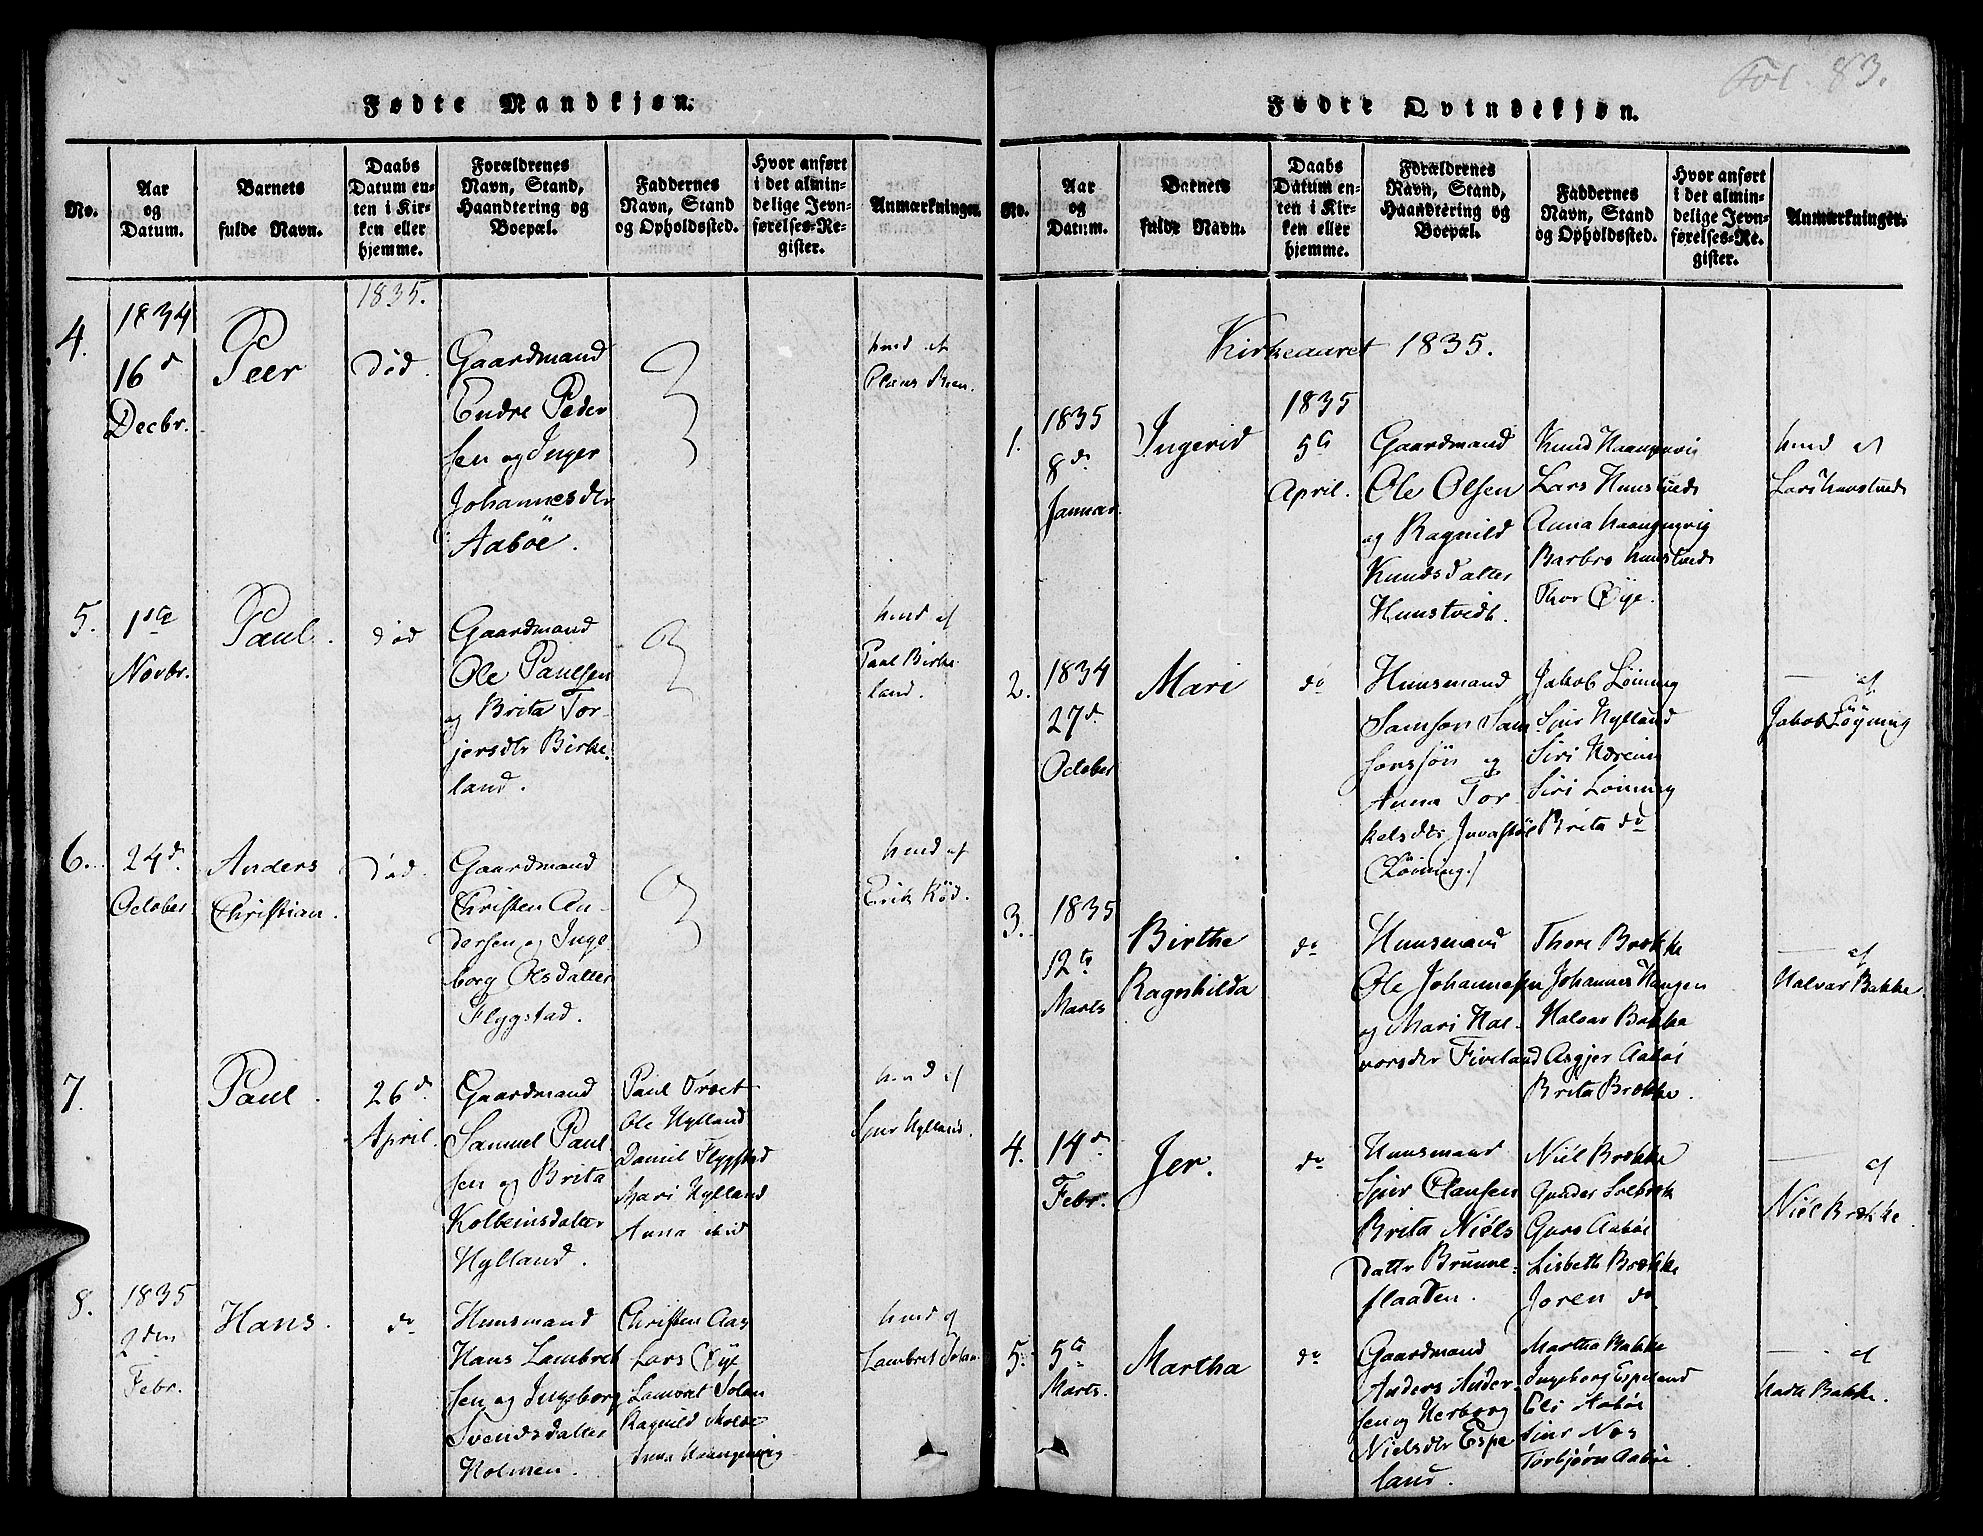 Fol. 83.
Fødte Mandkjøn.
No.
Aar
og
Datum.
Barnets
fulde Navn.
Daabs
Datum en-
ten i Kir-
ken eller
hjemme.
Forældrenes
Navn, Stand,
Haandtering og
Boepæl.
Faddernes
Navn, Stand
og Opholdssted.
Hvor anført
i det almin-
delige Jevn-
førelses-Re-
gister.
Anmærkninger.
4.
1834
16d
Decbr.
Peer
1835.
død.
Gaardmand
Endre Peder
sen og Inger
Johannesdtr
Aaböe.
hmd af
5.
1ste
Novbr.
Paul.
død
Gaardmand
Ole Paulsen
og Brita Tor-
jersdtr Birke-
land.
hmd af
Paul Birke
land.
6.
24d
October
Anders
Christian.
død.
Gaardmand
Christen An-
dersen og Inge
borg Olsdatter
Flygstad.
hmd af
Erik Röd.
7.
Paul.
26d
April.
Gaardmand
Samuel Paul
sen og Brita
Kolbeinsdatter
Hylland.
Paul Træet
Ole Hylland
Daniel Flygstad
Mari Hylland
Anna ibid
hmd af
Sjur Hylland.
8.
1835
2den
Febr.
Hans.
do
Huusmand
Hans Lambret
sen og Ingeborg
Svendsdatter
Holmen.
Christen Aas
Lars Öye
Lamvret
Ragnild Molde
Anna Haangenvig
hmd af
Lambret
Fødte Qvindekjøn.
No.
Aar
og
Datum.
Barnets
fulde Navn.
Daabs
Datum en-
ten i Kir-
ken eller
hjemme.
Forældrenes
Navn, Stand,
Haandtering og
Boepæl.
Faddernes
Navn, Stand
og Opholdssted.
Hvor anført
i det almin-
delige Jevn-
førelses-Re-
gister.
Anmærkninger.
Kirkeaaret 1835.
1.
1835
8d
Januar.
Ingerid
1835
5te
April.
Gaardmand
Ole Olsen
og Ragnild
Knudsdatter
Huustvedt.
Knud Haangenvig
Lars Huustvedt
Anna Haangenvig
Barbro Huustvedt
Thor Öye.
hmd af
Lars Huustvedt
2.
1834
27d
October
Mari
do
Huusmand
Samson Sam
sonssön og
Anna Tor-
kelsdtr
(Löining.)
Jakob Löining
Sjur Hylland
Siri
Siri Löining
Brita do
— af
Jakob Löyning
3.
1835
12te
Marts
Birthe
Ragnhilda
do
Huusmand
Ole Johannesen
og Mari Hal-
vorsdtr Fiveland
Thore Brække
Johannes Haugen
Halvor Bakke
Asgjer Aaböe
Brita Brække.
— af
Halvor Bakke.
4.
14d
Febr.
Jer.
do
Huusmand
Sjur Clausen
Brita Niels
datter Brunne-
flaaten.
Niel Brække
Gunder Solbræk
Guro Aaböe
Lisbeth Brække
Joren do
— af
Niel Brække.
5.
5te
Marts.
Martha
do
Gaardmand
Anders Ander-
sen og Herborg
Nielsdtr Espe
land.
Martha Bakke
Ingeborg Espeland
Eli Aaböe
Sjur Nos
Torbjørn Aaböe.
— af
Bakke.